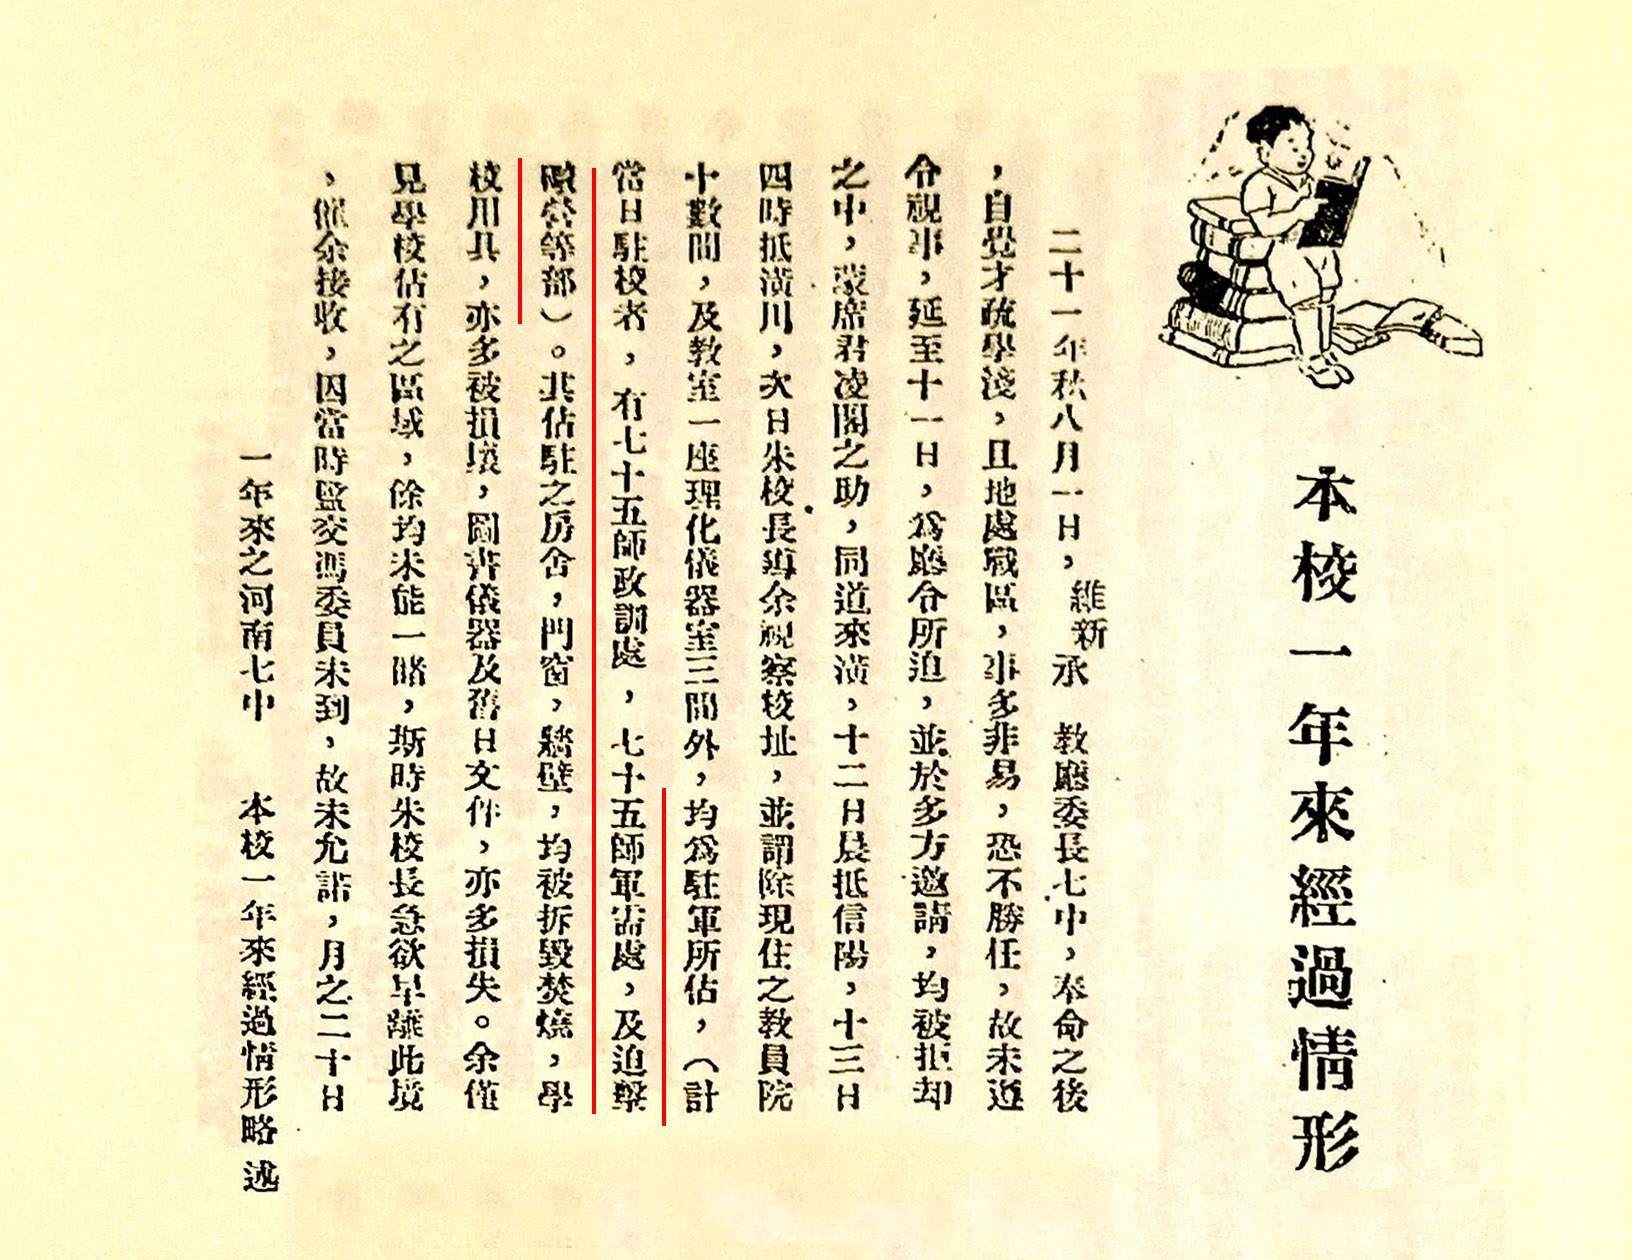 本校一年來經過情形
二十一年秋八月一日，維新承　教廳委長七中，奉命之後
，自覺才疏學淺，且地處戰區，事多非易，恐不勝任，故未逕
令視事，延至十一日，為廳令所迫，並於多方邀請，均被拒却
之中，蒙席君凌閣之助，同道來潢，十二日晨抵信陽，十三日
四時抵潢川，次日朱校長導余視察校址，並謂除現住之教員院
十數間，及教室一座理化儀器室三間外，均為駐軍所佔，（計
當日駐校者，有七十五師政訓處，七十五師軍需處，及迫擊
礮營等部）。其佔駐之房舍，門窗，牆壁，均被拆毀焚燒，學
校用具，亦多被損壞，圖書儀器及舊日文件，亦多損失。余僅
見學校佔有之區域，餘均未能一睹，斯時朱校長急欲早離此境
，催余接收，因當時監交馮委員未到，故未允諾，月之二十日
一年來之河南七中　本校一年來經過情形略述